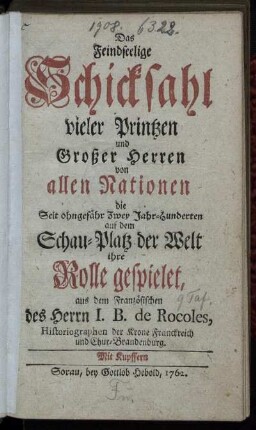 1908. 6328.
Das
Feindseelige
Schicksahl
vieler Printzen
und
Großer Herren
von
allen Nationen
die
Seit ohngefähr zwey Jahr-Hunderten
auf dem
Schau-Platz der Welt
ihre
Rolle gespielet,
aus dem Französischen
9 Taf.
des Herrn I. B. de Rocoles,
Historiographen der Krone Franckreich
und Chur-Brandenburg.
Mit Kupffern
Sorau, bey Gottlob Hebold, 1762.